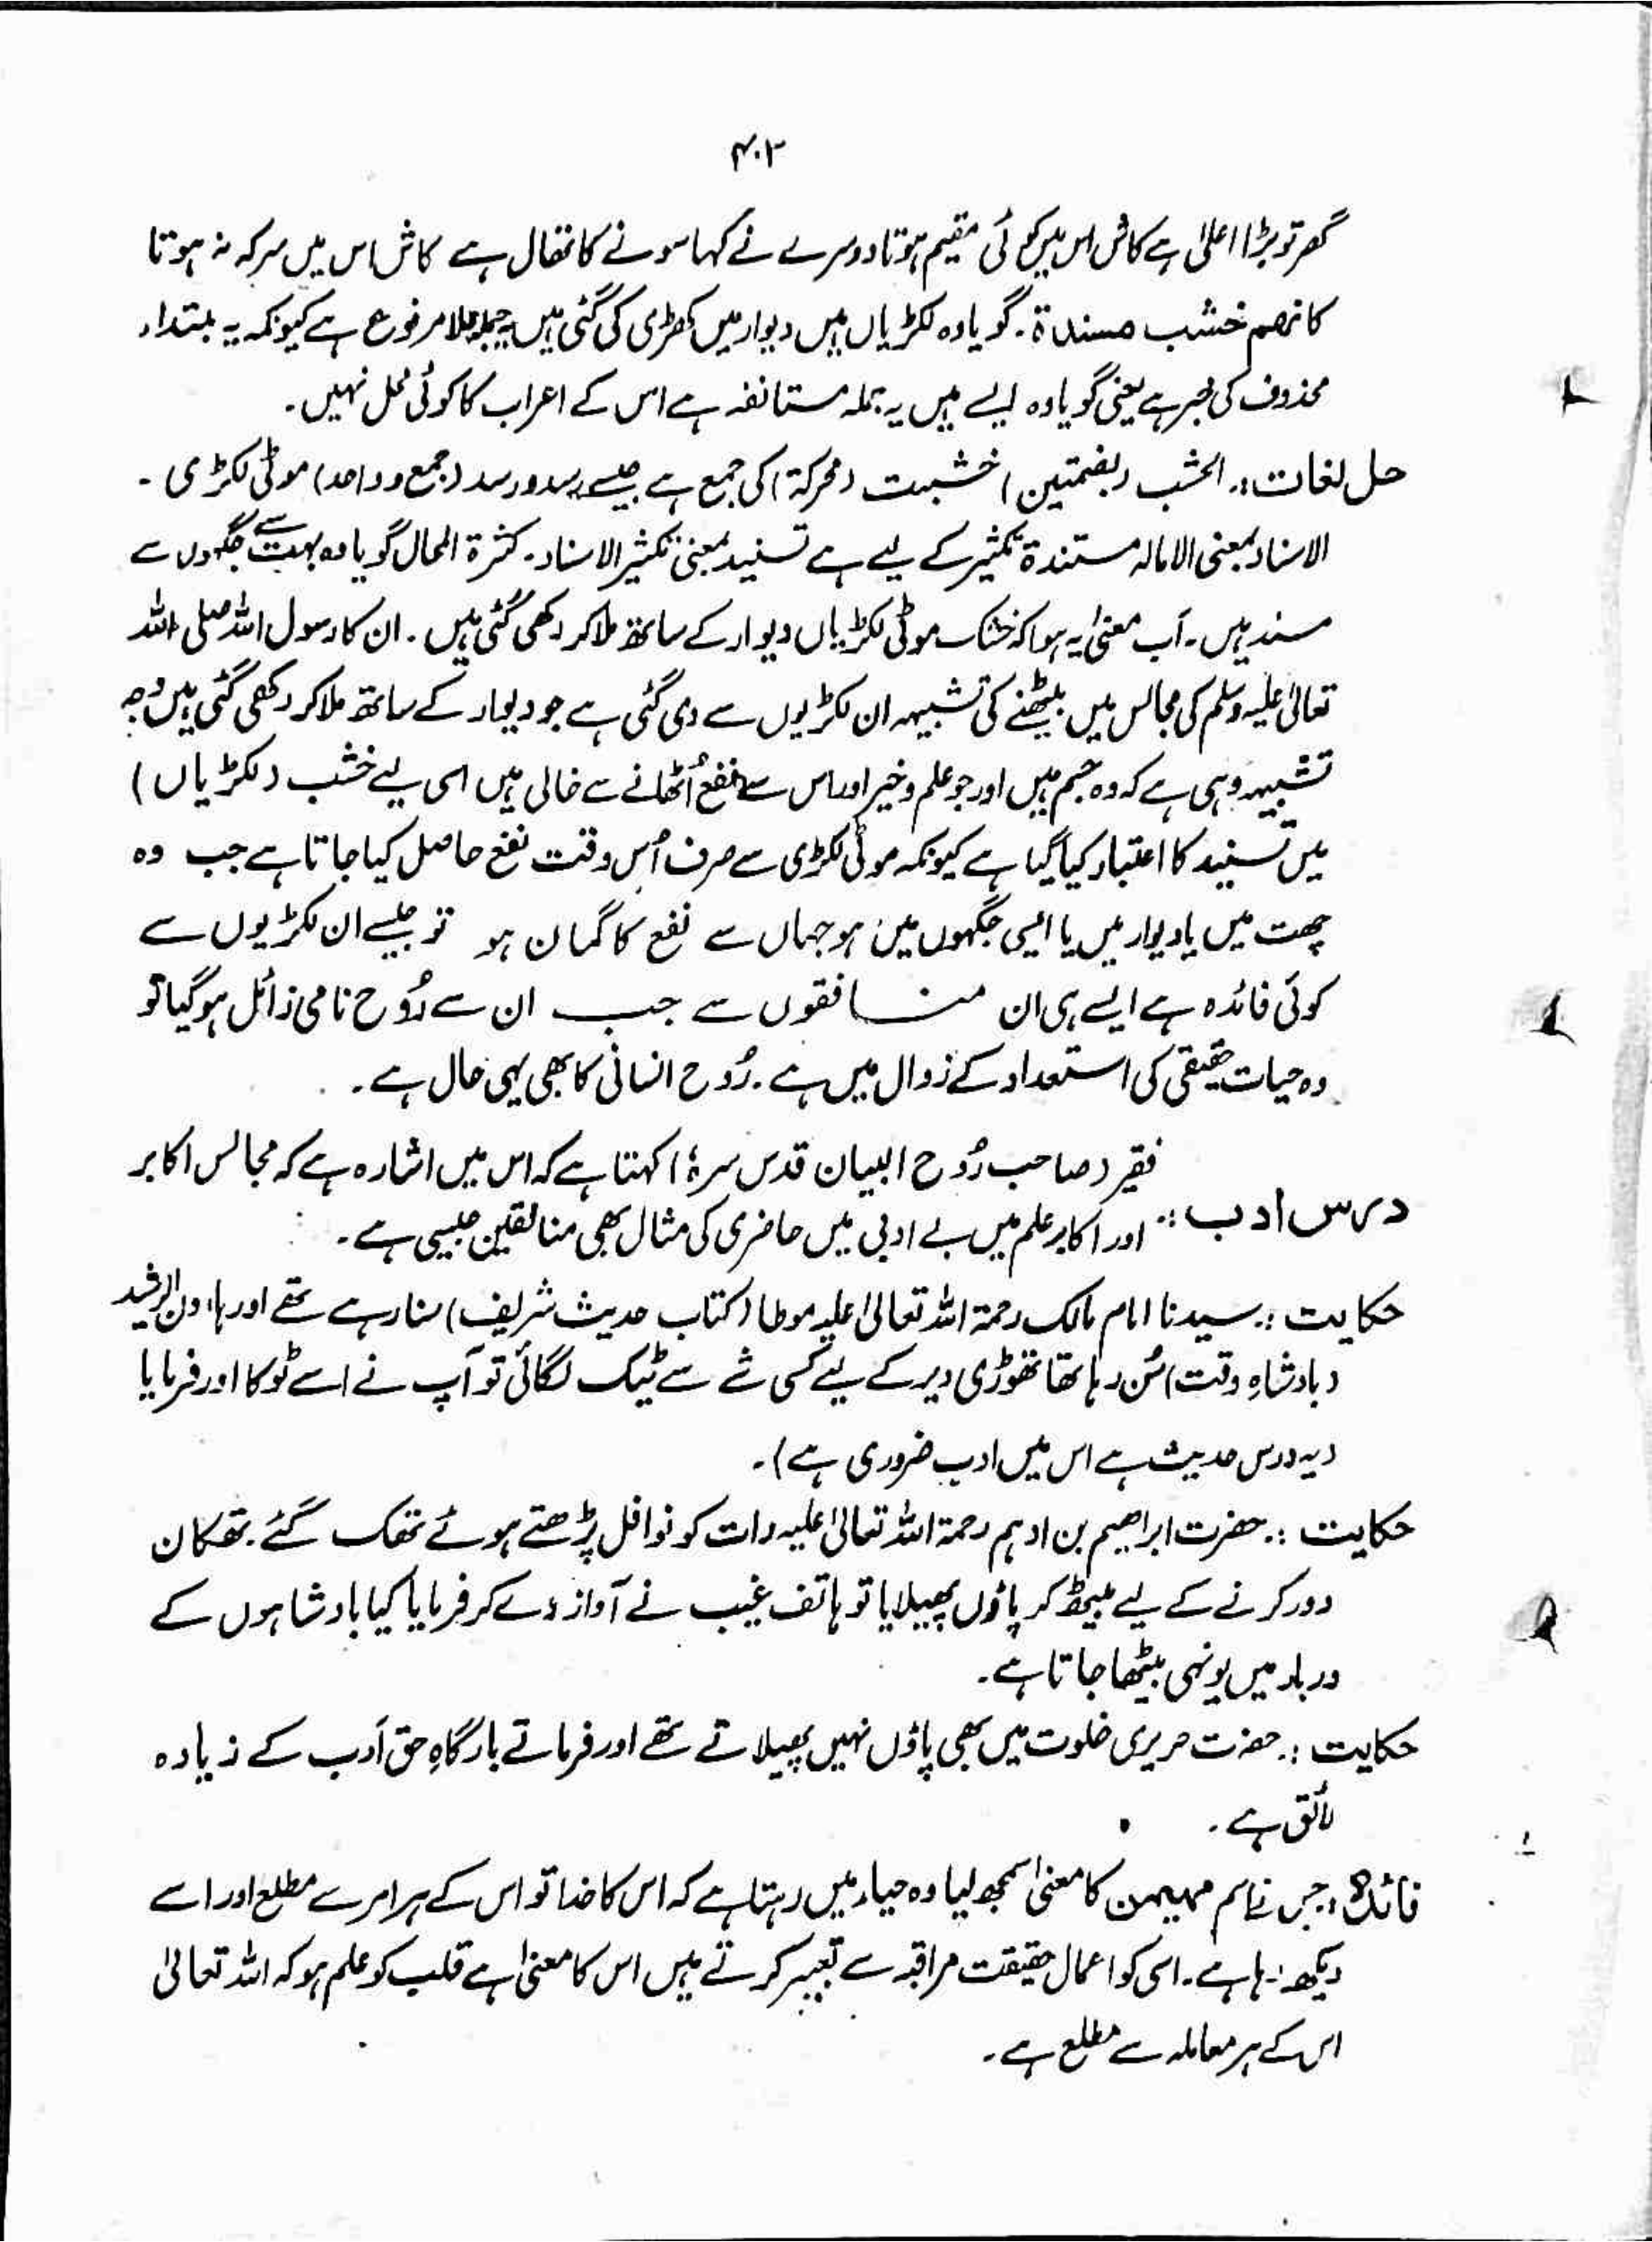 ۴۰۲
گھر تو بڑا اعلیٰ ہے کاش اس میں کوئی مقیم ہوتا دوسرے نے کہا سونے کا تھال ہے کاش اس میں سرکہ نہ ہوتا
کانھم خشب مسندۃ۔ گویا وہ لکڑیاں ہیں دیوار میں کھڑی کی گئی ہیں یہ جملہ محلا مرفوع ہے کیونکہ یہ مبتداء
محذوف کی خبر ہے یعنی گویا وہ ایسے ہیں یہ جملہ مستانفہ ہے اس کے اعراب کا کوئی محل نہیں۔
حل لغات :۔ الخشب (بضمتین) خشبت (محرکۃ) کی جمع ہے جیسے (جمع و واحد) موٹی لکڑی۔
الاسناد بمعنی الامالہ مستندۃ تکثیر کے لیے ہے تسنید بمعنی تکثیر الاسناد۔ کثرۃ المحال گویا وہ بہت سے جگہوں سے
مسند ہیں۔ اَب معنیٰ یہ ہوا کہ خشک موٹی لکڑیاں دیوار کے ساتھ ملا کر رکھی گئی ہیں۔ ان کا رسول اللہ صلی اللہ
تعالیٰ علیہ وسلم کی مجالس میں بیٹھنے کی تشبیہہ ان لکڑیوں سے دی گئی ہے جو دیوار کے ساتھ ملا کر رکھی گئی ہیں وجہ
تشبیہہ وہی ہے کہ وہ جسم ہیں اور جو علم و خیر اور اس سے نفع اُٹھانے سے خالی ہیں اسی لیے خشب (لکڑیاں)
میں تسنید کا اعتبار کیا گیا ہے کیونکہ موٹی لکڑی سے صرف اُس وقت نفع حاصل کیا جاتا ہے جب وہ
چھت میں یا دیوار میں یا ایسی جگہوں میں ہو جہاں سے نفع کا گمان ہو تو جیسے ان لکڑیوں سے
کوئی فائدہ ہے ایسے ہی ان منافقوں سے جب ان سے رُوح نامی زائل ہو گیا تو
وہ حیات حقیقی کی استعداد کے زوال میں ہے۔ رُوح انسانی کا بھی یہی حال ہے۔
فقیر (صاحب رُوح البیان قدس سرہٗ) کہتا ہے کہ اس میں اشارہ ہے کہ مجالس اکابر
درس ادب :۔ اور اکابر علم میں بے ادبی میں حاضری کی مثال بھی منافقین جیسی ہے۔
حکایت :۔ سیدنا امام مالک رحمۃ اللہ تعالیٰ علیہ موطا (کتاب حدیث شریف) سنا رہے تھے اور ہارون الرشید
(بادشاہِ وقت) سُن رہا تھا تھوڑی دیر کے لیے کسی شے سے ٹیک لگائی تو آپ نے اسے ٹوکا اور فرمایا
(یہ درس حدیث ہے اس میں ادب ضروری ہے)۔
حکایت :۔ حضرت ابراھیم بن ادہم رحمۃ اللہ تعالیٰ علیہ رات کو نوافل پڑھتے ہوئے تھک گئے۔ تھکان
دور کرنے کے لیے بیٹھ کر پاؤں پھیلایا تو ہاتف غیب نے آواز دے کر فرمایا کیا بادشاہوں کے
دربار میں یونہی بیٹھا جاتا ہے۔
حکایت :۔ حضرت حریری خلوت میں بھی پاؤں نہیں پھیلاتے تھے اور فرماتے بارگاہِ حق اَدب کے زیادہ
لائق ہے۔
فائدہ : جس نے اسم مھیمن کا معنیٰ سمجھ لیا وہ حیاء میں رہتا ہے کہ اس کا خدا تو اس کے ہر امر سے مطلع اور اسے
دیکھ رہا ہے۔ اسی کو اعمال حقیقت مراقبہ سے تعبیر کرتے ہیں اس کا معنیٰ ہے قلب کو علم ہو کہ اللہ تعالیٰ
اس کے ہر معاملہ سے مطلع ہے۔